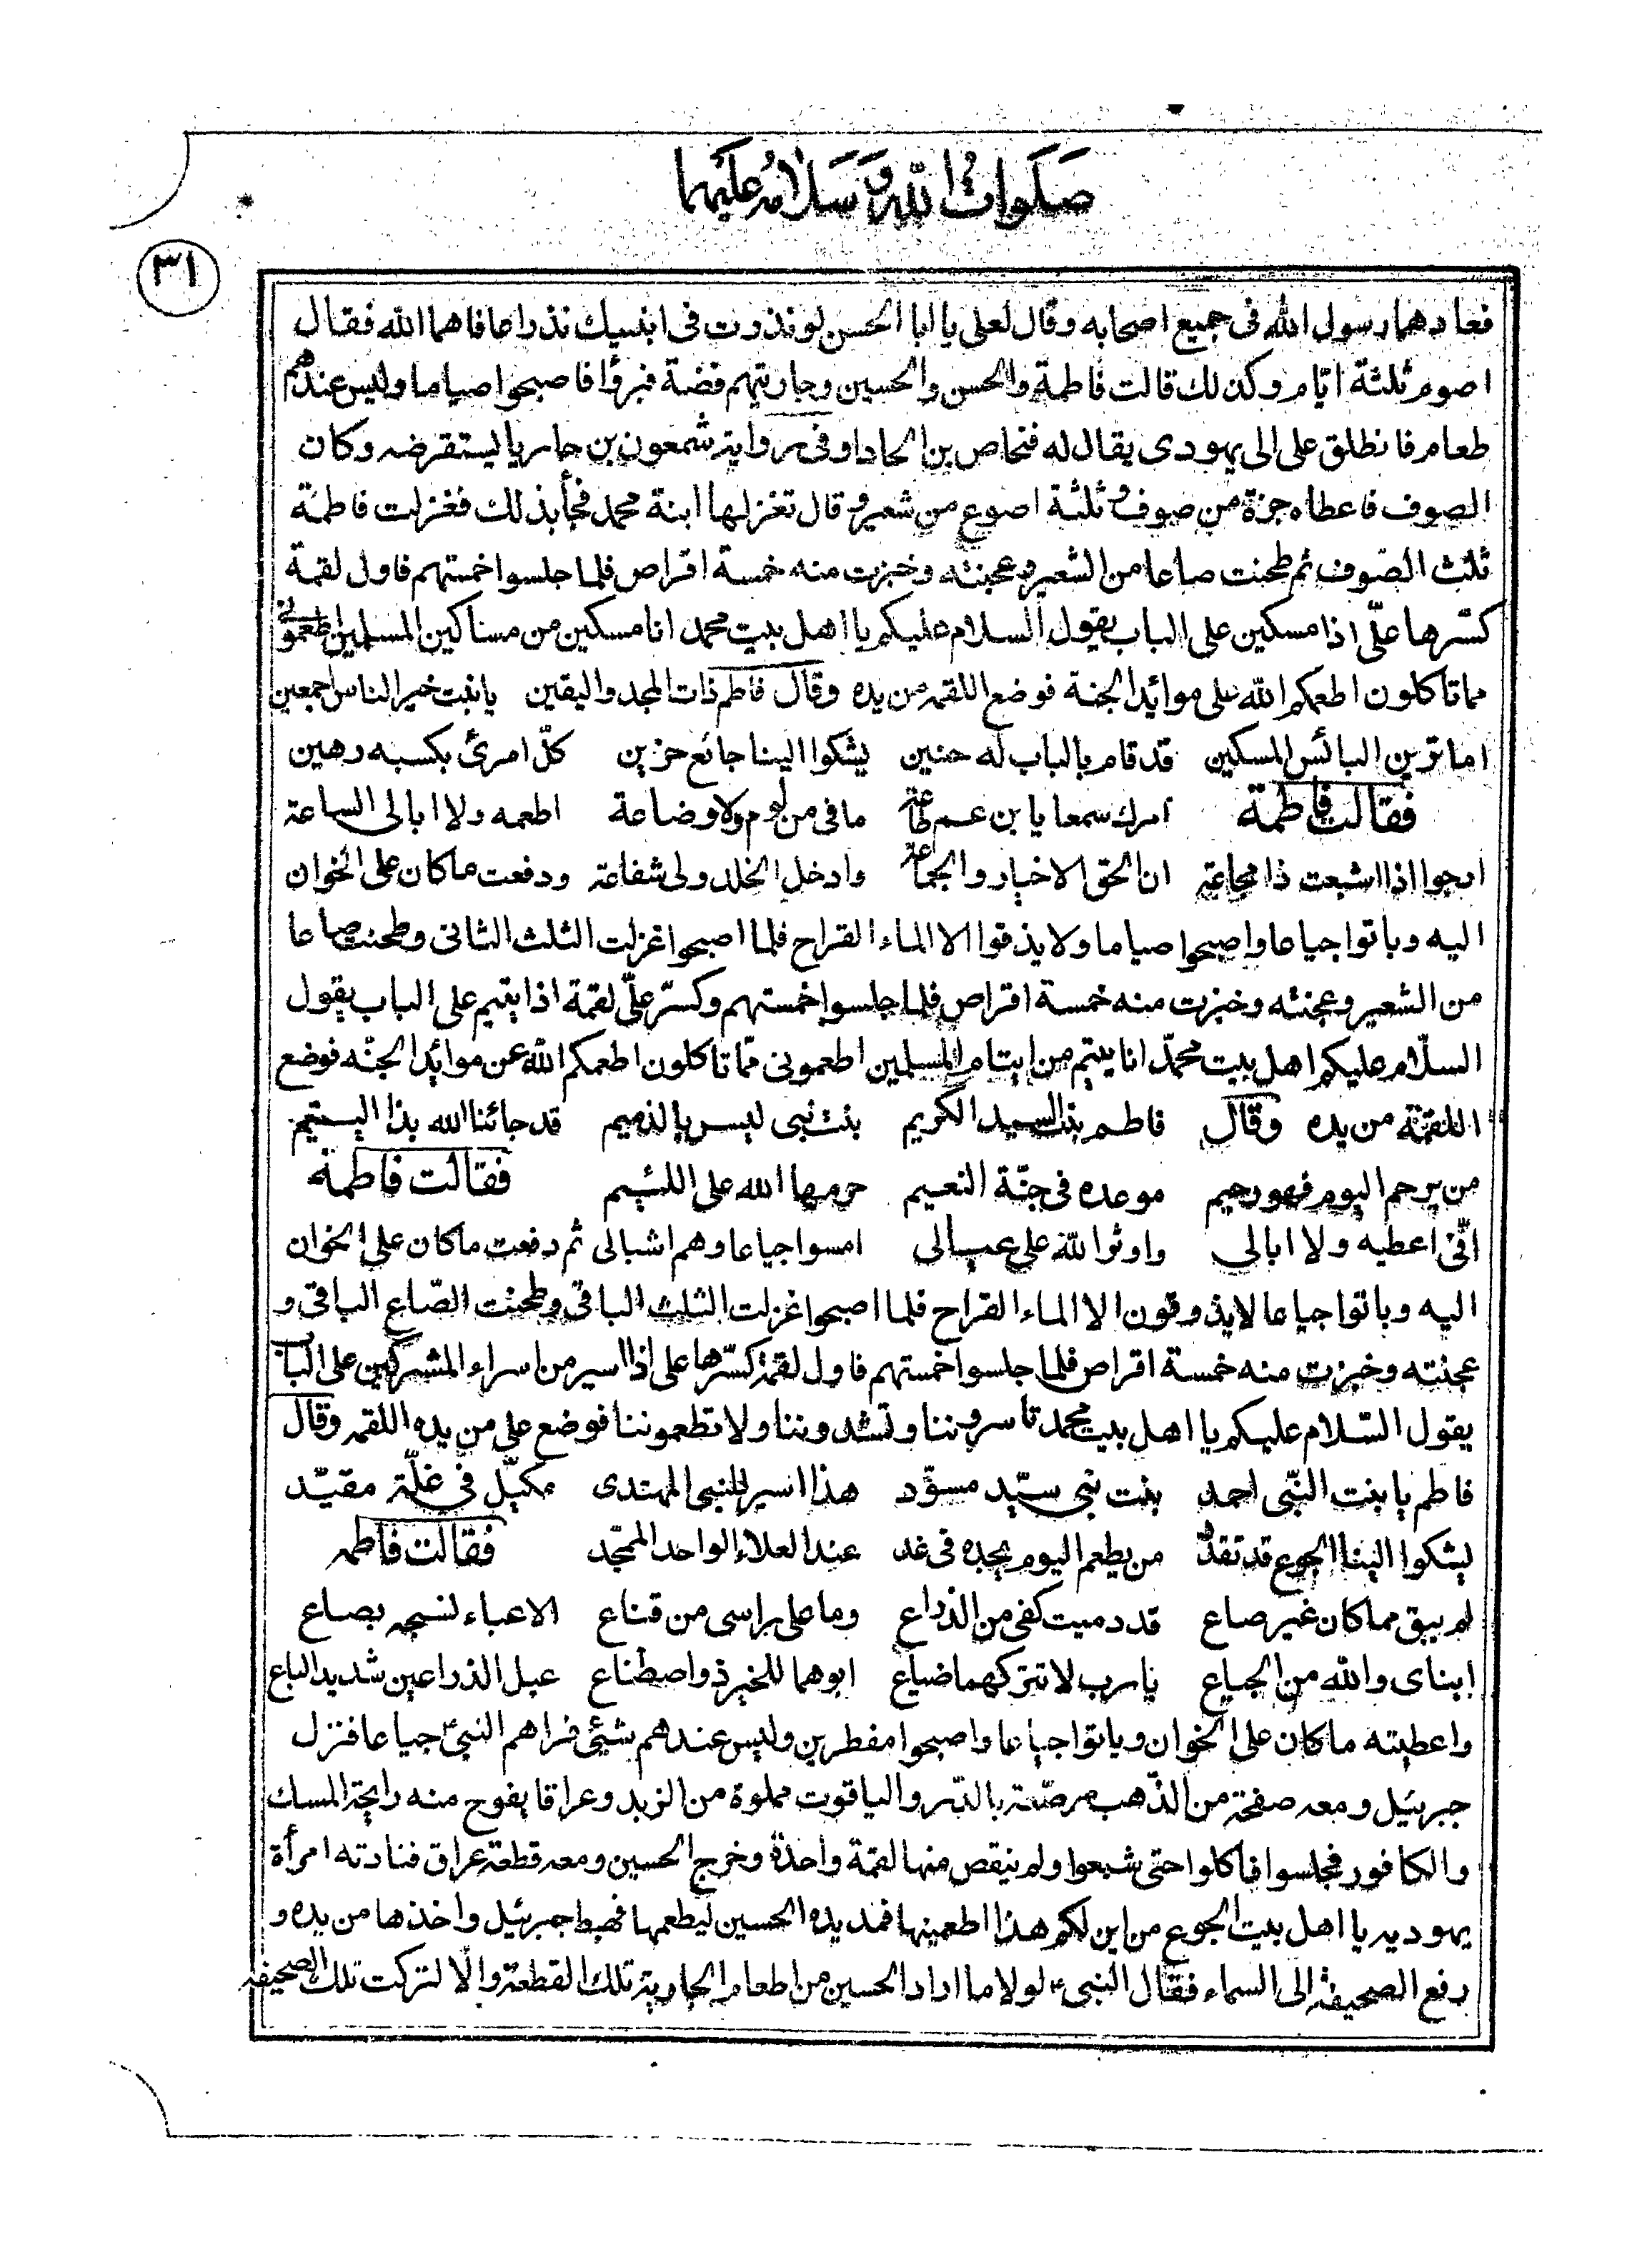 صلوات الله وسلامه عليهما
٣١
فعادهما رسول الله فى جميع اصحابه وقال لعلى يا ابا الحسن لو نذرت فى ابنيك نذرا عافاهما الله فقال
اصوم ثلثة ايّام وكذلك قالت فاطمة والحسن والحسين وجاريتهم فضة فبرؤا فاصبحوا صياما وليس عندهم
طعام فانطلق على الى يهودى يقال له فنحاص بن الحادا وفى رواية شمعون بن حاريا يستقرضه وكان
الصوف فاعطاه جزة من صوف وثلثة اصوع من شعير وقال تغزلها ابنة محمد فجأ بذلك فغزلت فاطمة
ثلث الصّوف ثم طحنت صاعا من الشعير وعجنته وخبزت منه خمسة اقراص فلما جلسوا خمستهم فاول لقمة
كسّرها علىّ اذا مسكين على الباب يقول السلام عليكم يا اهل بيت محمد انا مسكين من مساكين المسلمين اطعمونى
مما تاكلون اطعمكم الله على موائد الجنة فوضع اللقمه من يده وقال فاطم ذات المجد واليقين يا بنت خير الناس اجمعين
اما ترين البائس المسكين قد قام بالباب له حنين يشكوا الينا جائع حزين كلّ امرئ بكسبه رهين
فقالت فاطمة امرك سمعا يا بن عم طاعة ما فى من لوم ولا وضاعة اطعمه ولا ابالى الساعة
ارجوا اذا اشبعت ذا مجاعة ان الحق الاخيار والجماعة وادخل الخلد ولى شفاعة ودفعت ما كان على الخوان
اليه وباتوا جياعا واصبحوا صياما ولا يذقوا الا الماء القراح فلما اصبحوا غزلت الثلث الثانى وطحنت صاعا
من الشعير وعجنته وخبزت منه خمسة اقراص فلما جلسوا خمستهم وكسّر علىّ لقمة اذا يتيم على الباب يقول
السلّام عليكم اهل بيت محمّد انا يتيم من ايتام المسلمين اطعمونى ممّا تاكلون اطعمكم الله عن موائد الجنّه فوضع
اللقمة من يده وقال فاطم بنت السيد الكريم بنت نبى ليس بالذميم قد جائنا الله بذا اليتيم
من يرحم اليوم فهو رحيم موعده فى جنّة النعيم حرمها الله على اللئيم فقالت فاطمة
انّى اعطيه ولا ابالى واوثر الله على عيالى امسوا جياعا وهم اشبالى ثم دفعت ما كان على الخوان
اليه وباتوا جياعا لا يذوقون الا الماء القراح فلما اصبحوا غزلت الثلث الباقى وطحنت الصّاع الباقى و
عجنته وخبزت منه خمسة اقراص فلما جلسوا خمستهم فاول لقمة كسّرها على اذا اسير من اسراء المشركين على الباب
يقول السّلام عليكم يا اهل بيت محمد تاسروننا وتشدوننا ولا تطعموننا فوضع على من يده اللقمه وقال
فاطم يا بنت النّبى احمد بنت نبى سيّد مسوّد هذا اسير للنبى المهتدى مكبّل فى غلّه مقيّد
يشكوا الينا الجوع قد تقدد من يطعم اليوم يجده فى غد عند العلاء الواحد الممجّد فقالت فاطمه
لم يبق مما كان غير صاع قد دميت كفى من الذراع وما على راسى من قناع الا عباء نسجه بصاع
ابناى والله من الجياع يا رب لا تتركهما ضياع ابوهما للخير ذو اصطناع عبل الذراعين شديد الباع
واعطيته ما كان على الخوان وباتوا جياعا واصبحوا مفطرين وليس عندهم شيئى فراهم النبىّ جياعا فنزل
جبرئيل ومعه صفحة من الذّهب مرصّعة بالدّر والياقوت مملوة من الزبد وعراقا يفوح منه رايحة المسك
والكافور فجلسوا فاكلوا حتى شبعوا ولم ينقص منها لقمة واحدة وخرج الحسين ومعه قطعة عراق فنادته امرأة
يهوديه يا اهل بيت الجوع من اين لكم هذا اطعمينها فمد يده الحسين ليطعمها فهبط جبرئيل واخذها من يده و
رفع الصحيفة الى السماء فقال النبى لولا ما اراد الحسين من اطعام الجارية تلك القطعة والّا لتركت تلك الصحيفة